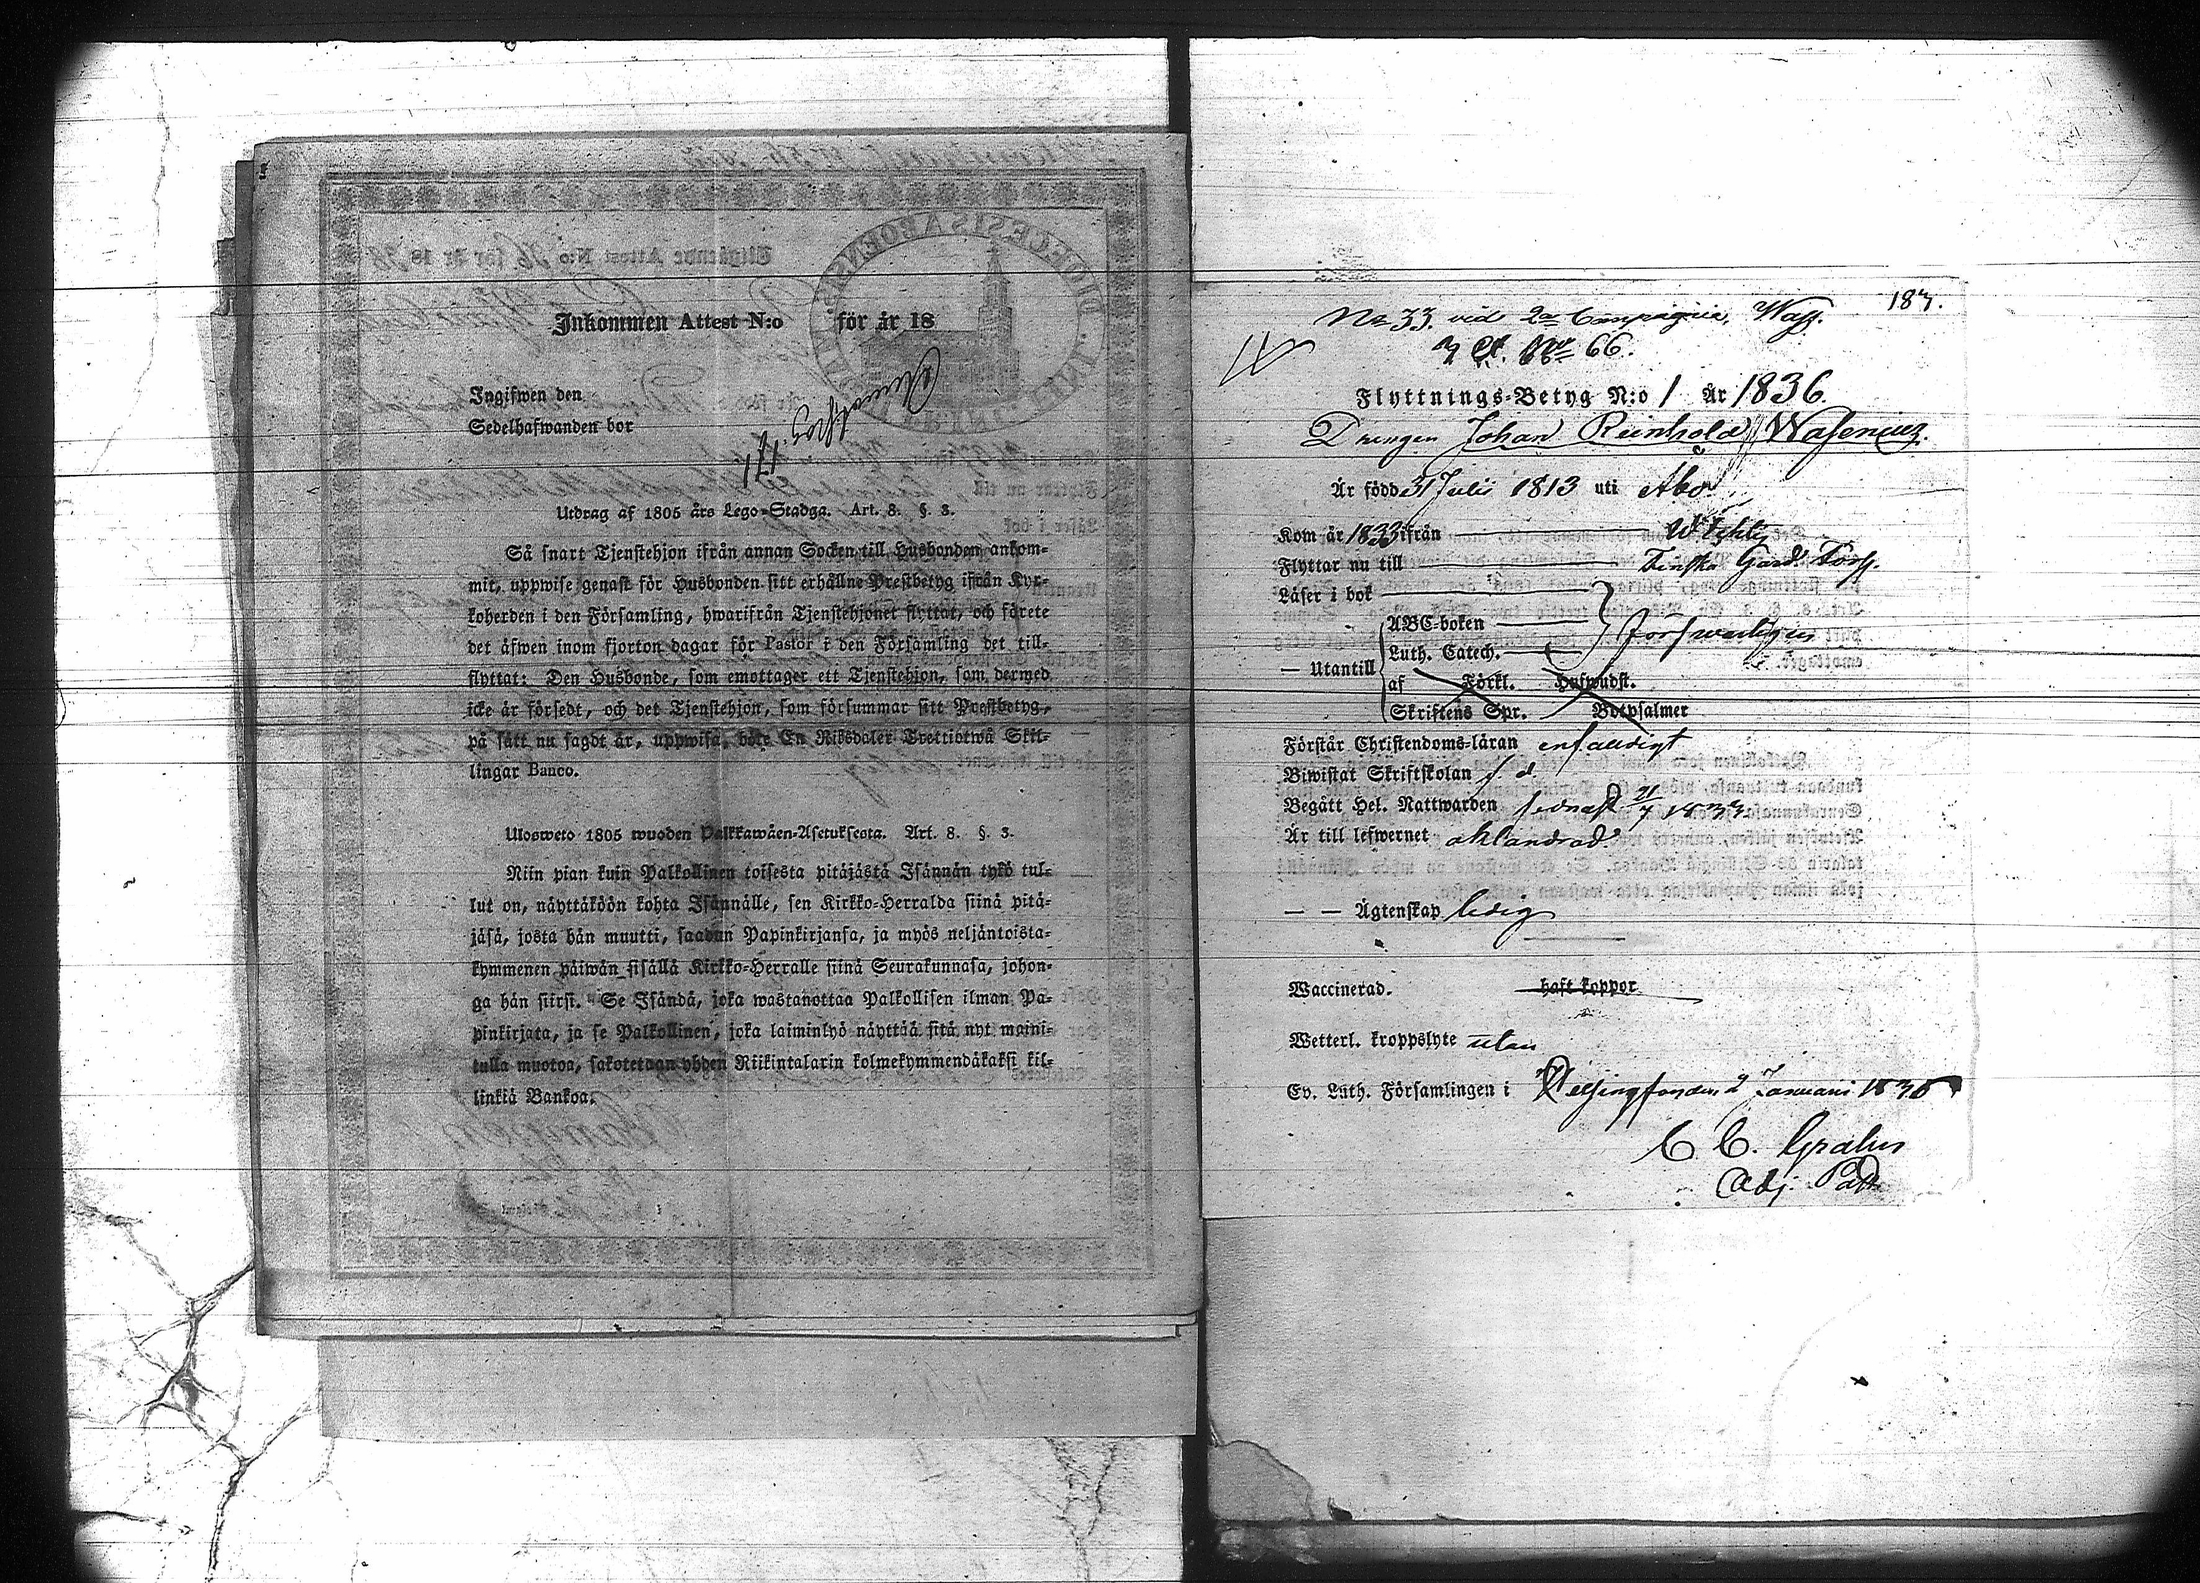 Inkommen Attest N:o för år 18
Ingifwen den
Sedelhafwanden bor
171
Utdrag af 1805 års Lego-Stadga. Art. 8. §. 3.
Så snart Tjenstehjon ifrån annan Socken till Husbonden ankom-
mit, uppwise genast för Husbonden sitt erhållne Prestbetyg ifrån Kyr-
koherden i den Församling, hwarifrån Tjenstehjonet flyttat, och förete
det äfwen inom fjorton dagar för Pastor i den Församling det till-
flyttat: Den Husbonde, som emottager ett Tjenstehjon, som dermed
icke är försedt, och det Tjenstehjon, som försummar sitt Prestbetyg,
på sätt nu sagdt är, uppwisa, böte En Riksdaler Trettiotwå Skil-
lingar Banco.
Ulosweto 1805 wuoden Palkkawäen-Asetuksesta. Art. 8. §. 3.
Niin pian kuin Palkollinen toisesta pitäjästä Isännän tykö tul-
lut on, näyttäköön kohta Isännälle, sen Kirkko-Herralda siinä pitä-
jäsä, josta hän muutti, saadun Papinkirjansa, ja myös neljäntoista-
kymmenen päiwän sisällä Kirkko-Herralle siinä Seurakunnasa, johon-
ga hän siirsi. Se Isändä, joka wastanottaa Palkollisen ilman Pa-
pinkirjata, ja se Palkollinen, joka laiminlyö näyttää sitä nyt maini-
tulla muotoa, sakotetaan yhden Riikintalarin kolmekymmendäkaksi kil-
linkiä Bankoa.
187.
No 33. vid 2a Compagnie, Wasa.
66.
Flyttnings-Betyg N:o 1 År 1836.
Drengen Johan Reinhold Wasenius.
Är född 31 Julii 1813 uti Åbo
Kom år 1833 ifrån
Flyttar nu till Finska Gard.
Läser i bok
ABC-boken försvarligen
Luth. Catech.
— Utantill
af Förkl. Hufwudst.
Skriftens Spr. Botpsalmer
Förstår Christendoms-läran enfaldigt
Biwistat Skriftskolan
Begått Hel. Nattwarden sednast 21/7 1833
Är till lefwernet oklandrad
— — Ägtenskap ledig
Waccinerad. haft koppor
Wetterl. kroppslyte utan
Ev. Luth. Församlingen i Helsingfors den 2 Januari 1836
Adj. Past.